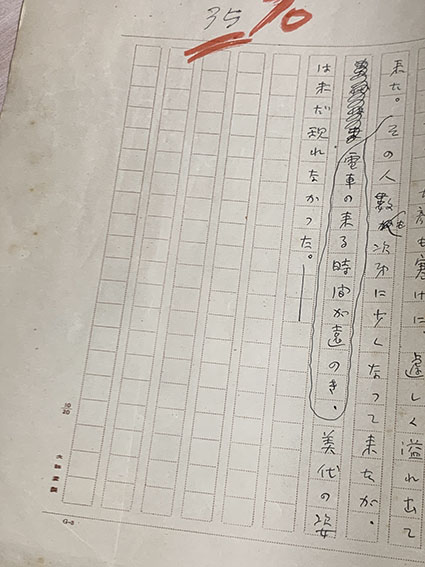 顔も寒けに、遽しく溢れ出て
来た。その人数も次第に少くなって来たが、
電車の来る時間が遠のき、美代の姿
は未だ現れなかった。――
35
10/20